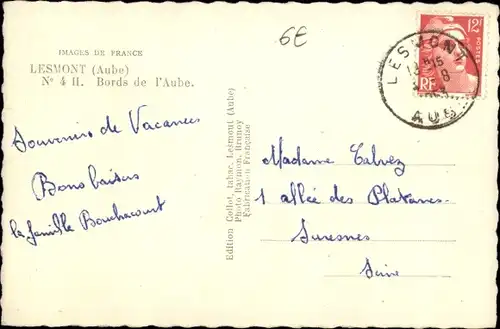 6E
IMAGES DE FRANCE
LESMONT (Aube)
N° 4 H. Bords de l'Aube.
Souvenirs de Vacances
Bons baisers
la famille Bouchacourt
Edition Collot, tabac, Lesmont (Aube)
Photo Raymon, Brunoy
Fabrication Française
12F
POSTES
RF
LESMONT
AUB
Madame Calvez
1 allée des Platanes
Suresnes
Seine